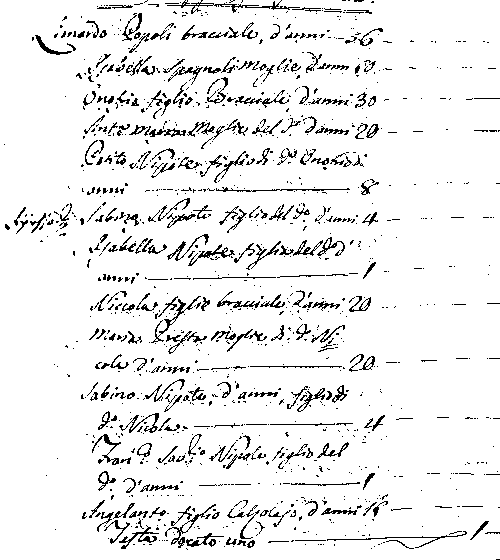 Limardo Popoli bracciale, d'anni 36
Isabella Spagnoli Moglie, d'anni
Onofrio figlio Bracciale d'anni 30
Moglie del d.º d'anni 20
Petito Nipote figlio di d.º Onofrio di
anni 8
Sabino Nipote figlio del d.º, d'anni 4
Isabella Nipote figlia del d.º d'
anni 1
Niccola figlio bracciale, d'anni 20
Maria Moglie di d.º Ni
cola d'anni 20
Sabino Nipote, d'anni, figlio di
d.º Nicola 4
Nipote figlio del
d.º d'anni 1
Angelanto figlio Calzolajo, d'anni
Testa docato uno 1